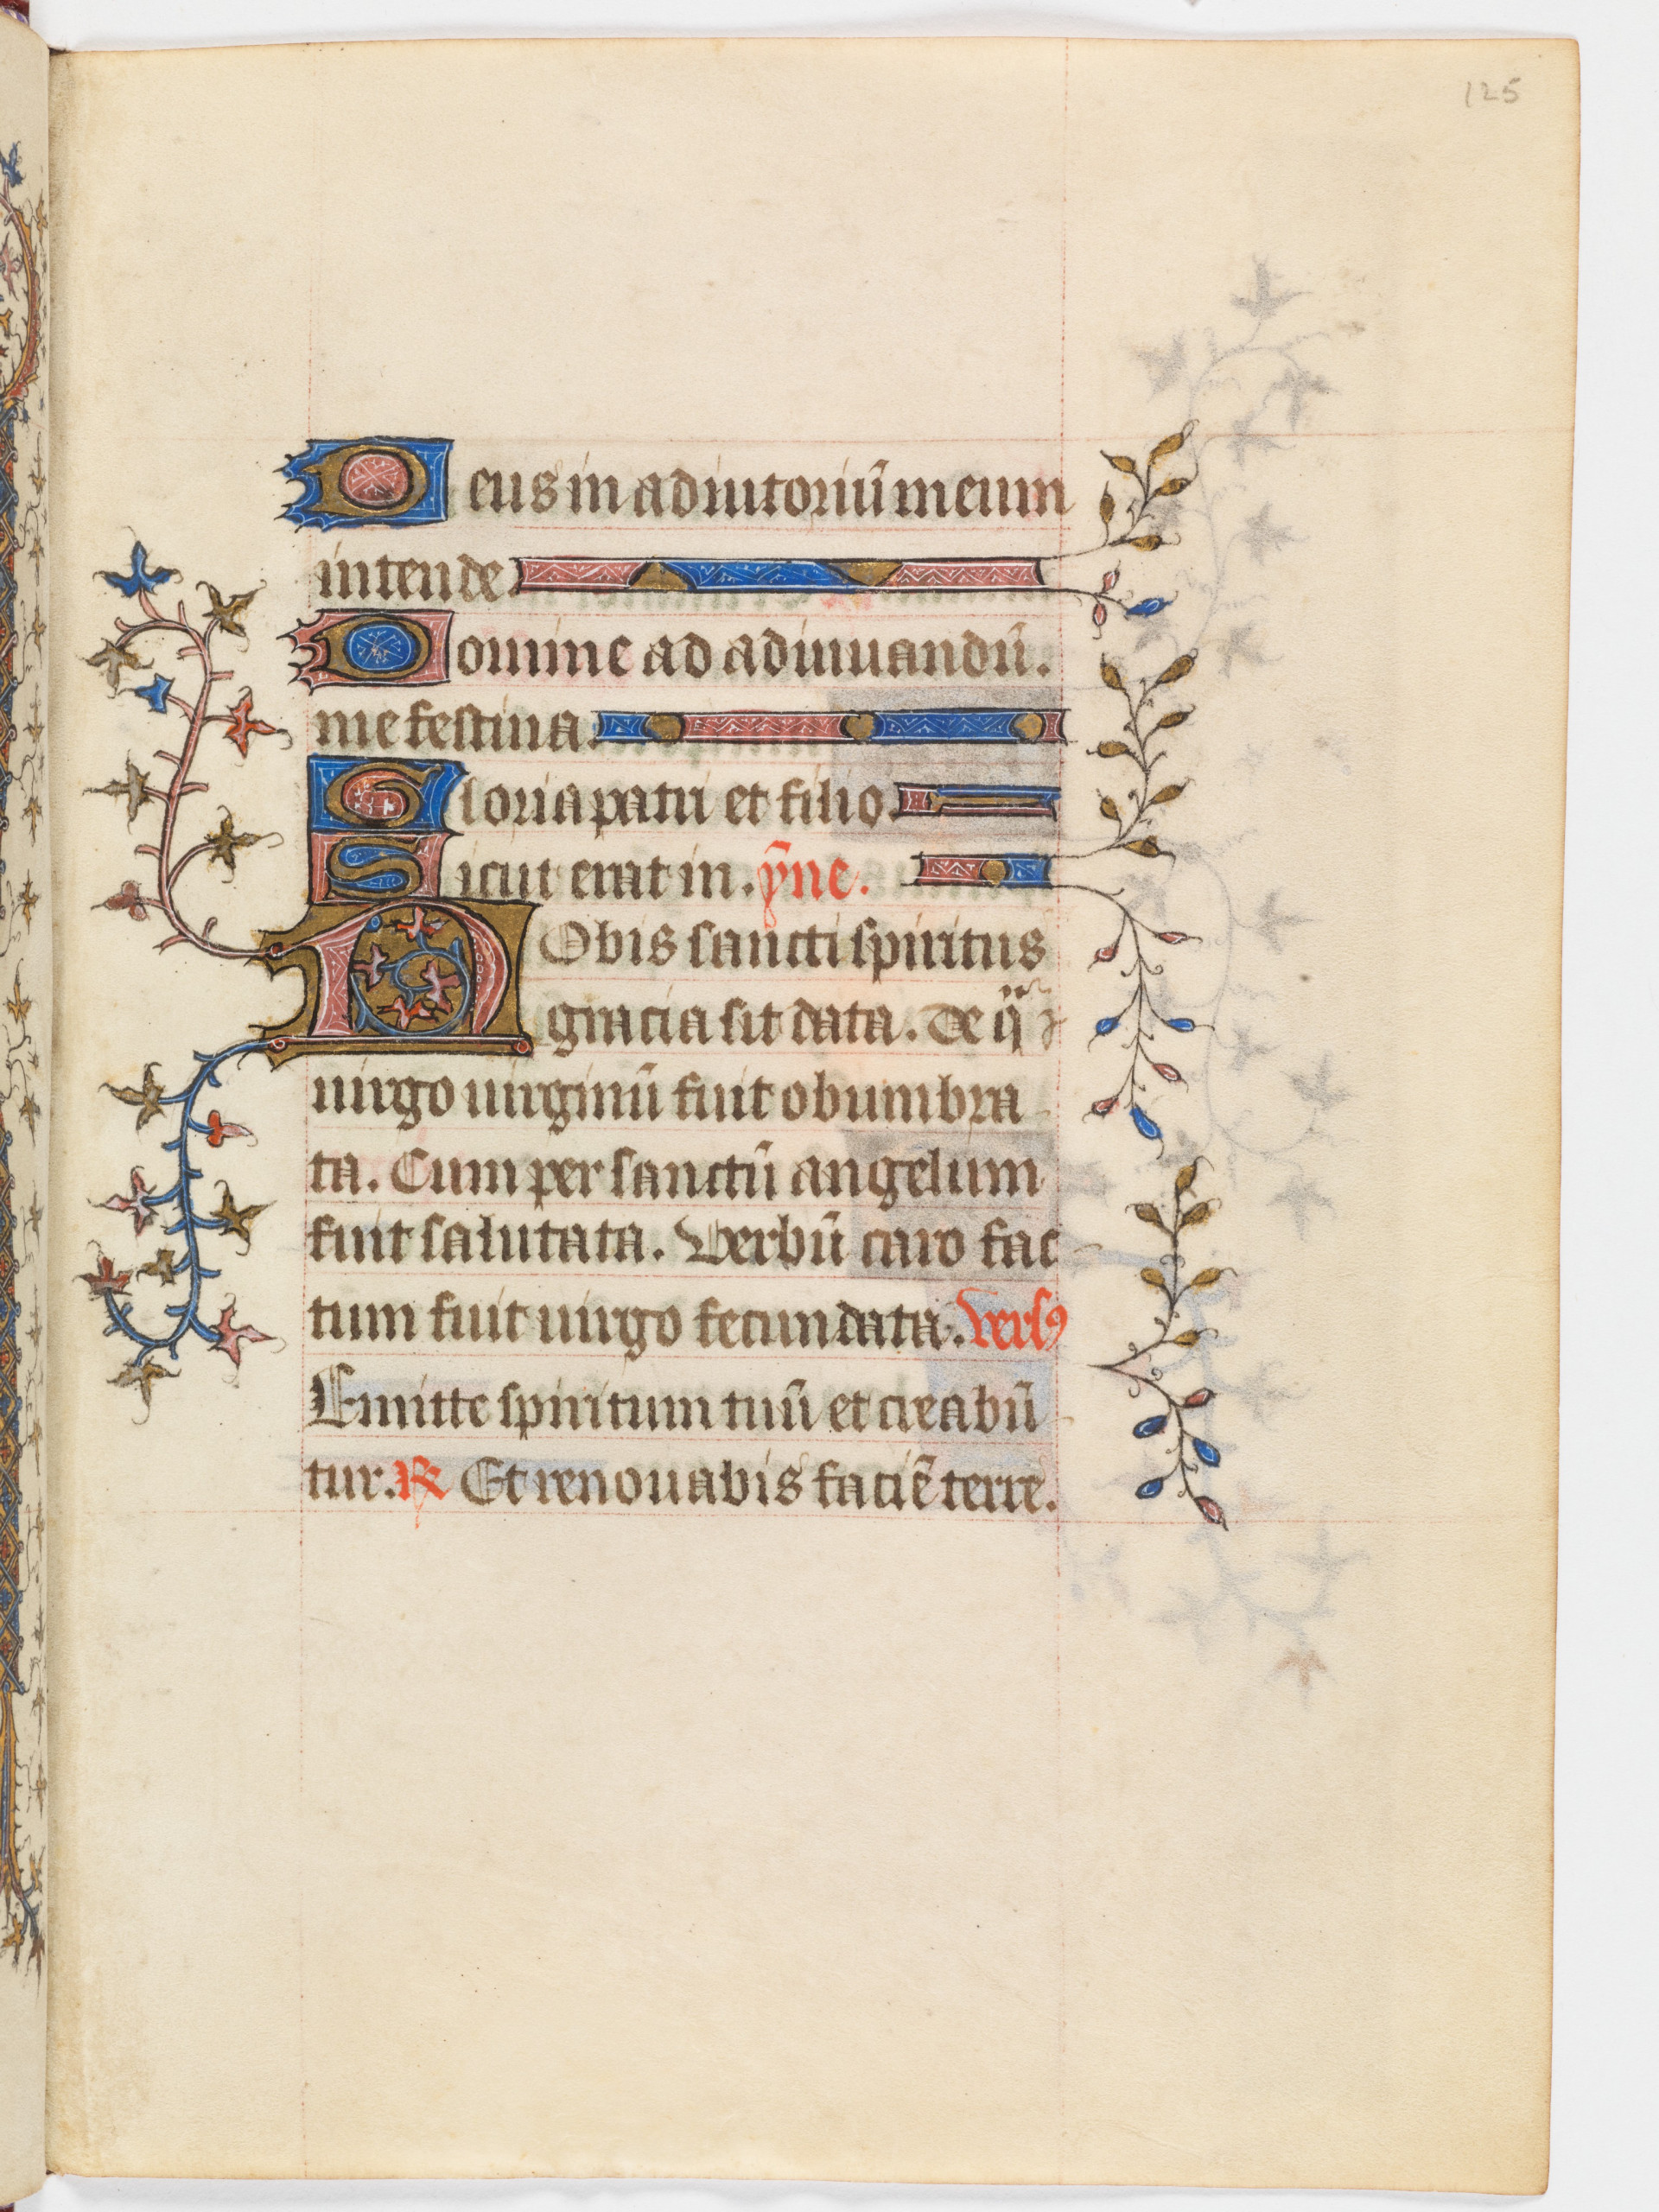 125
Deus in adiutoriū meum
intende.
Domine ad adiuuandū.
me festina.
Gloria patri et filio.
Sicut erat in. ẏne.
NObis sancti spiritus
gracia sit data. De q̄
uirgo uirginū fuit obumbra
ta. Cum per sanctū angelum
fuit salutata. Verbū caro fac
tum fuit uirgo fecundata. versꝰ
Emitte spiritum tuū et creabū
tur. ℟ Et renouabis faciē terre.